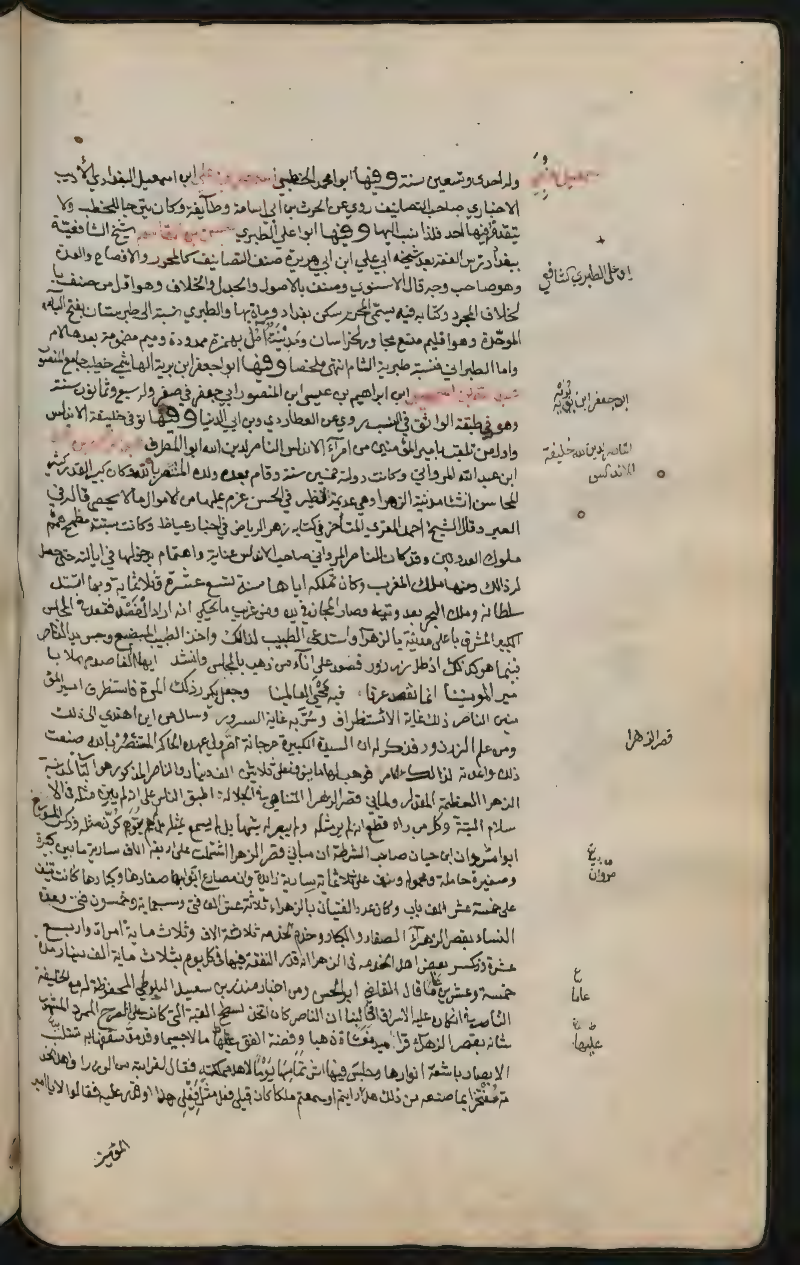 وله احدى وتسعين سنة وفيها ابو محمد الخطبي اسمعيل بن علي ابن اسمعيل البغدادي الاديب
الاخباري صاحب التصانيف روى عن الحرث بن ابي اسامة وطايفة وكان يرتجل الخطب ولا
يتقدمه فيها احد فلذا نسب اليها وفيها ابو علي الطبري شيخ الشافعية
ببغداد درس الفقه بعد شيخه ابي علي ابن ابي هريرة صنف التصانيف كالمحرر والافصاح والعدة
وهو صاحب وجه قال الاسنوي وصنف بالاصول والجدل والخلاف وهو اول من صنف با
لخلاف المجرد وكتابه فيه يسمى المحرر سكن بغداد ومات بها والطبري نسبة الى طبرستان بفتح الباء
الموحدة وهو اقليم متسع مجاور لخراسان ومدينة آمل بهمزة ممدودة وميم مضمومة بعدها لام
واما الطبراني فنسبة طبرية الشام انتهى ملخصا وفيها ابو جعفر ابن برية الهاشمي خطيب جامع المنصور
ابن ابراهيم بن عيسى ابن المنصور ابي جعفر في صفر وله سبع وثمانون سنة
وهو في طبقة الواثق في النسب روى عن العطاردي وبن ابي الدنيا وفيها توفي خليفة الاندلس
واول من تلقب بامير المؤمنين من امراء الاندلس الناصر لدين الله ابو المطرف
ابن عبد الله المرواني وكانت دولته خمسين سنة وقام بعده ولده المستنصر بالله وكان كبير القدر كثير
المحاسن انشا مدينة الزهرا وهي عديمة النظير في الحسن غرم عليها من الاموال ما لا يحصى قاله في
العبر وقال الشيخ احمد المقري المتأخر في كتابه زهر الرياض في اخبار عياض وكانت سبتة مطمح همم
ملوك العدوتين وقد كان للناصر المرواني صاحب الاندلس عناية واهتمام بدخولها في ايالته حتى حصل
له ذلك ومنها ملك المغرب وكان تملكه اياها سنة تسع عشرة وثلاثماية وبها اشتد
سلطانه وملك البحر بعدوتيه وصار المجاز في يده ومن غريب ما يحكى انه اراد الفصد فقعد في المجلس
الكبير المشرق باعلى مدينة بالزهراء واستدعى الطبيب لذلك واخذ الطبيب المبضع وجس يد الناصر
فبينما هو كذلك اذ طل زرزور فصعد على اناء من ذهب بالمجلس وانشد ايها الفاصد مهلا با
مير المومنينا انما تفصد عرقا فيه محيى العالمينا وجعل يكرر ذلك المرة فاستظرف امير المؤ
منين الناصر ذلك غاية الاستظراف وسر به غاية السرور وسال عن من اهتدى الى ذلك
ومن علم الزرزور فذكر له ان السيدة الكبيرة مرجانة ام ولي عهده الحاكم المستنصر بالله صنعت
ذلك واعدته لذلك الامر فوهب لها ما ينوف على ثلاثين الف دينار والناصر المذكور هو الباني لمدينة
الزهرا العظيمة المقدار ولما بنى قصر الزهرا المتناهي في الجلالة اطبق الناس على انه لم يبن مثله في الا
سلام البتة وكل من راه قطع انه لم ير مثله ولم يبصر له شبها بل لم يسمع بمثله بل لم يتوهم كون مثله وذكر المورخ
ابو مروان ابن حيان صاحب الشرطة ان مباني قصر الزهرا اشتملت على اربعة الاف سارية ما بين كبيرة
وصغيرة حاملة ومحمولة ونيف على ثلاثماية سارية زايدة وان مصاريع ابوابها صغارها وكبارها كانت تنيف
على خمسة عشر الف باب وكان عدد الفتيان بالزهراء ثلاثة عشر الف فتى وسبعماية وخمسون فتى وعدة
النساء بقصر الزهراء الصغار والكبار وخدم الخدمه ثلاثة الاف وثلاث ماية امراة واربع
عشرة وذكر بعض اهل الخدمة في الزهرا انه قدر النفقة فيها في كل يوم بثلاث ماية الف دينار مدة
خمسة وعشرين عاما قال القاضي ابو الحسن ومن اخبار منذر بن سعيد البلوطي المحفوظة له مع الخليفة
الناصر في انكاره عليه الاسراف في البنا ان الناصر كان اتخذ لسطح القبة التي كانت على الصرح الممرد المشهور
شانه بقصر الزهراء قراميد مغشاة ذهبا وفضة انفق عليها مالا جسيما وقرمد سقفها به تستلب
الابصار باشعة انوارها وجلس فيها اثر تمامها يوما لاهل مملكته فقال لقرابته من الوزرا واهل الخد
مة مفتخرا بما صنعه من ذلك هل رايتم او سمعتم ملكا كان قبلي فعل مثل فعلي هذا او قدر عليه فقالوا لا يا امير
المؤمنين
ابو علي الطبري الشافعي
ابو جعفر ابن برية
الناصر لدين الله خليفة
الاندلس
قصر الزهرا
مروان
عاما
عليها